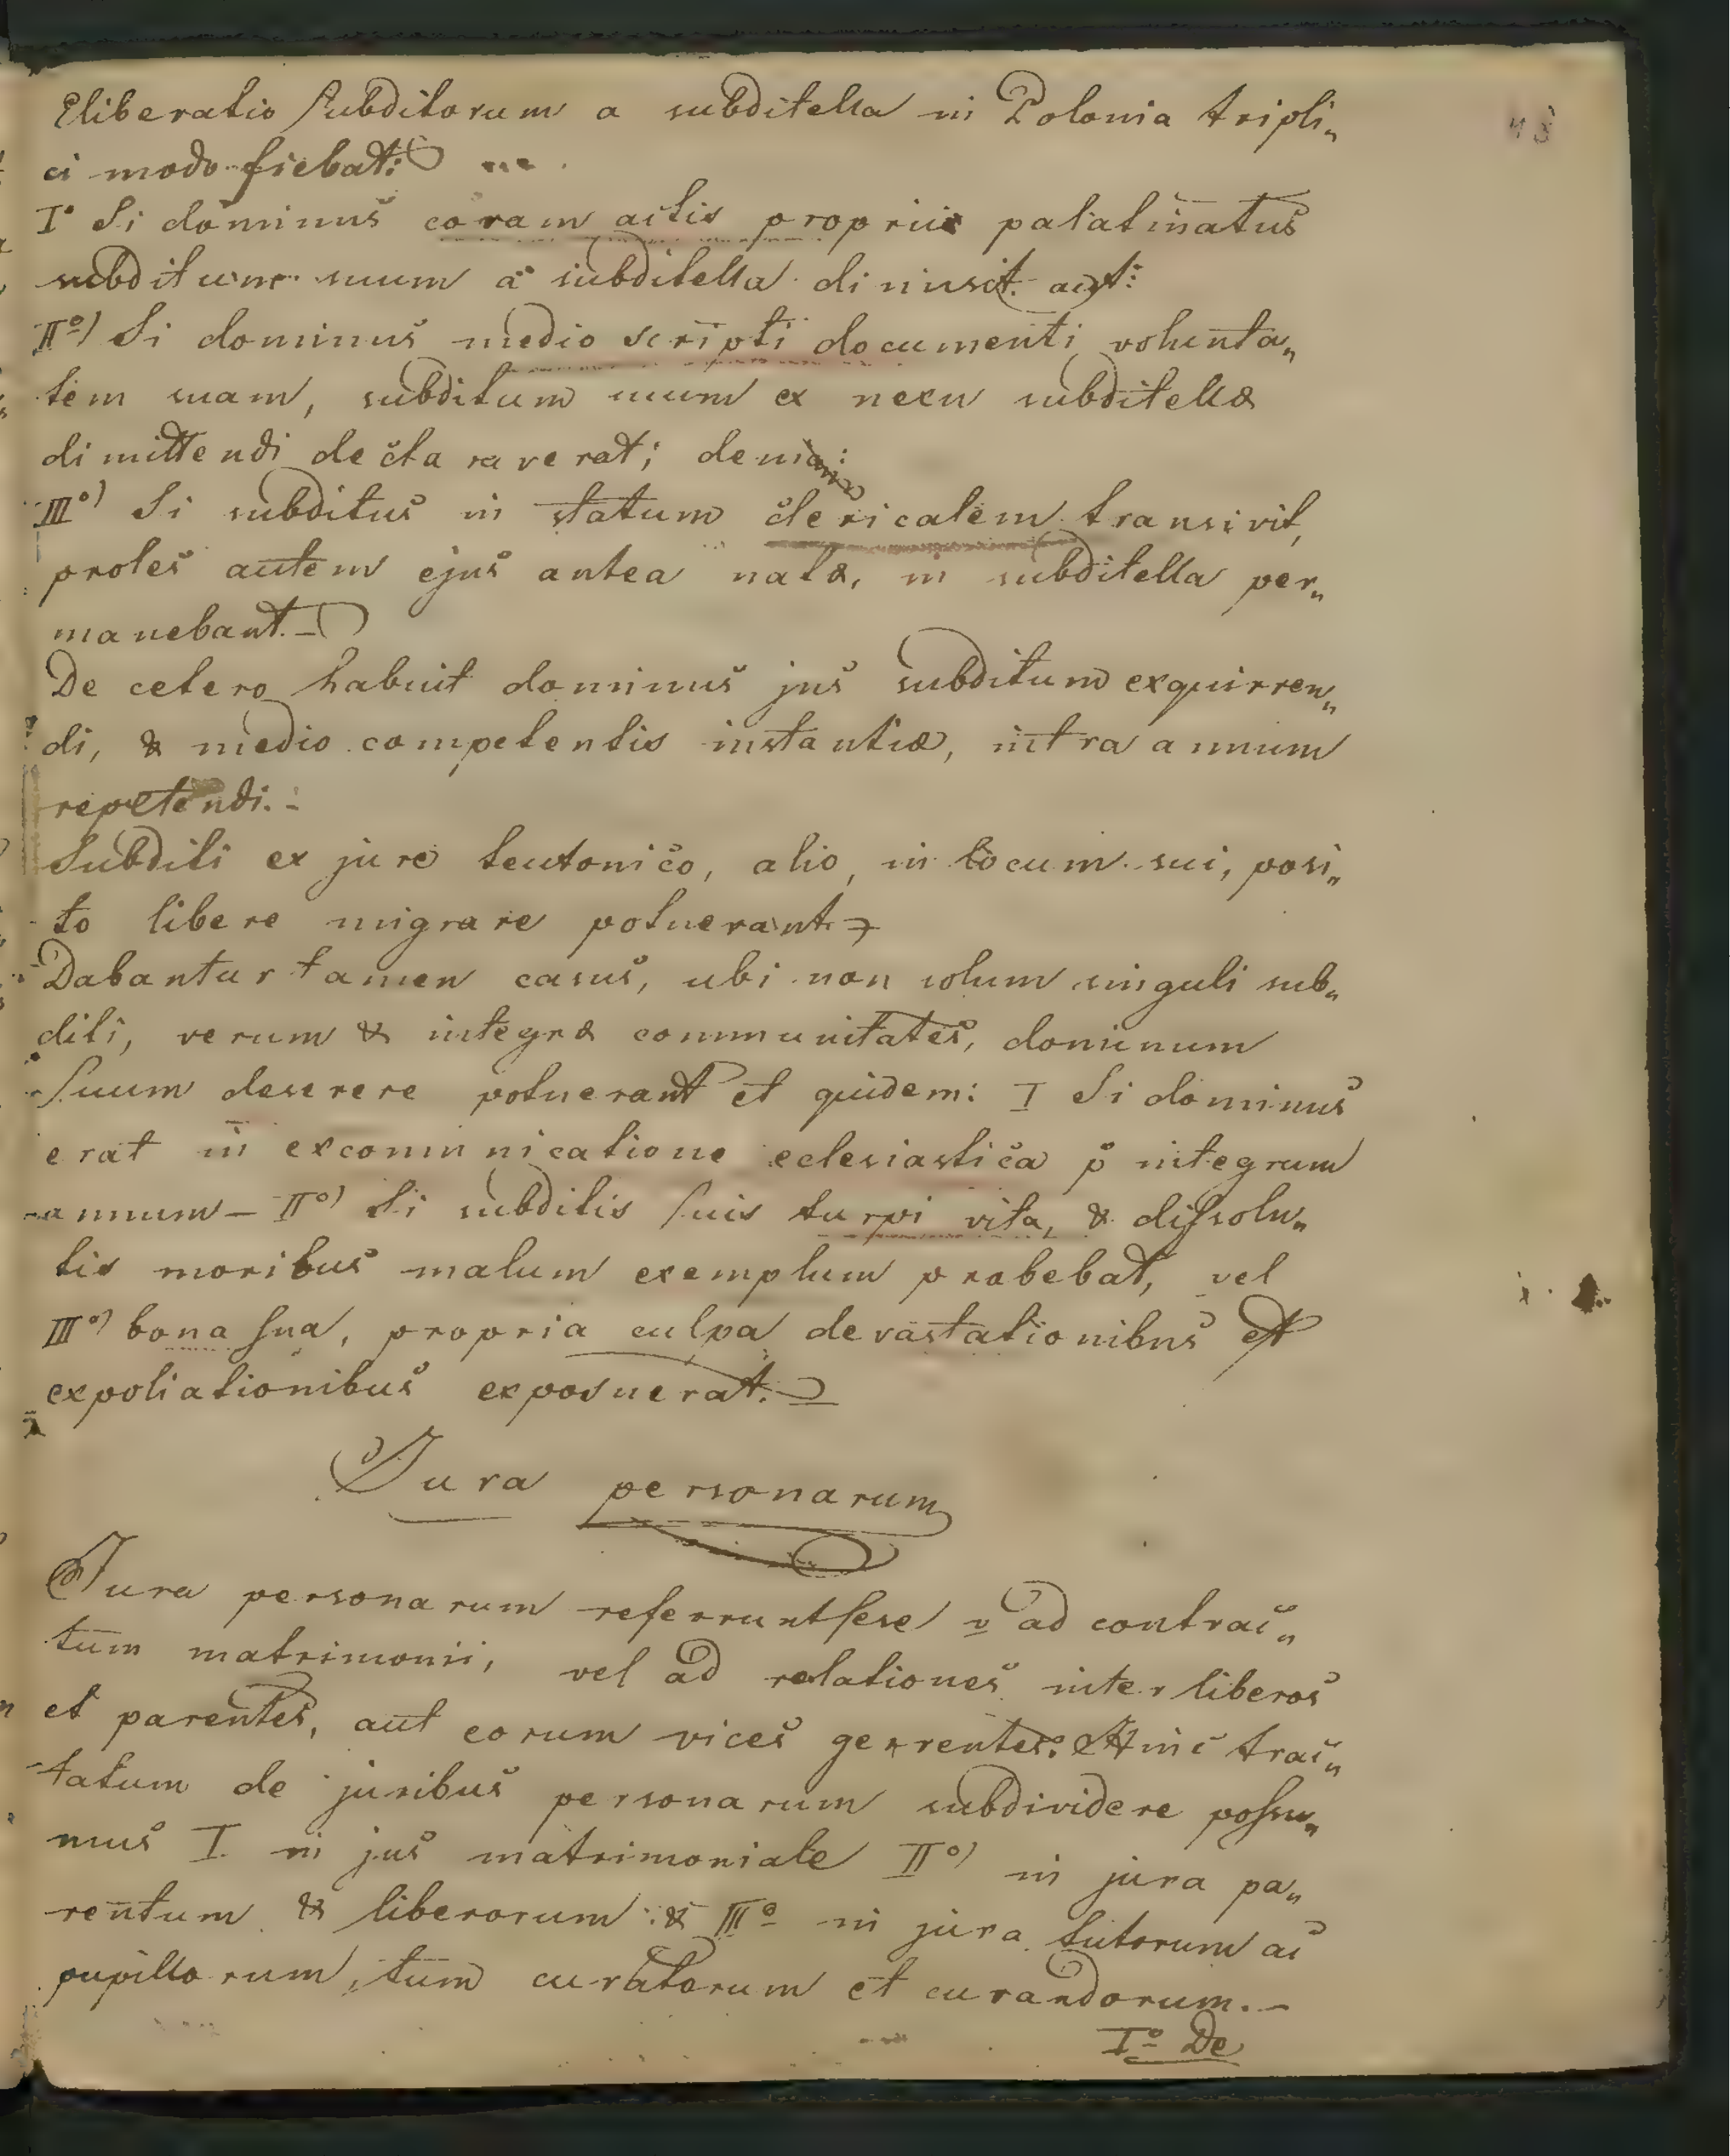 Eliberatio subditorum a subditella in Polonia tripli„
ci modo fiebat:
I° Si dominus coram actis propriis palatinatus
subditum suum a subditella dimisit. aut:
II°) Si dominus medio scripti documenti volunta„
tem suam, subditum suum ex nexu subditellæ
dimittendi declaraverat;
III°) Si subditus in statum clericalem transivit,
proles autem ejus antea natæ, in subditella per„
manebant.–
De cetero habuit dominus jus subditum exquirren„
di, & medio competentis instantiæ, intra annum
repetendi.–
Subditi ex jure teutonico, alio, in locum sui, posi„
to libere migrare potuerant
Dabantur tamen casus, ubi non solum singuli sub„
diti, verum & integræ communitates, dominum
suum deserere potuerant et quidem: I Si dominus
erat in excommunicatione eclesiastica p integrum
annum – II°) Si subditis suis turpi vita, & dissolu„
tis moribus malum exemplum præbebat, vel
III°) bona sua, propria culpa devastationibus et
expoliationibus exposuerat.
Jura personarum
Jura personarum referruntsese v ad contrac„
tum matrimonii, vel ad relationes inter liberos
et parentes, aut eorum vices gerrentes: Hinc trac„
tatum de juribus personarum subdividere possu„
mus I. in jus matrimoniale II°) in jura pa„
rentum & liberorum: & III° in jura tutorum ac
pupillorum, tum curatorum et curandorum.–
I° De